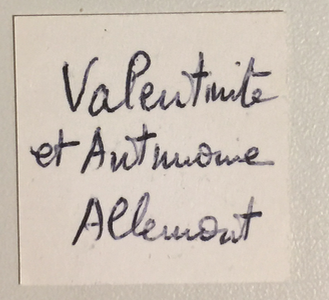 Valentinite
et Antimoine
Allemont